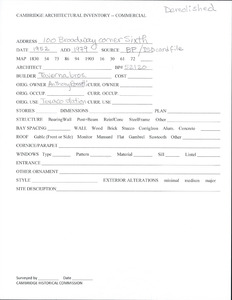 Demolished
CAMBRIDGE ARCHITECTURAL INVENTORY -- COMMERCIAL
ADDRESS 100 Broadway corner Sixth
DATE 1952 ADD 1979 SOURCE BP/ISD card file
MAP 1830 54 73 86 94 1903 16 30 61 72
ARCHITECT BP#
BUILDER COST
ORIG. OWNER CURR. OWNER
ORIG. OCCUP CURR. OCCUP.
ORIG. USE Texaco station CURR. USE
STORIES DIMENSIONS PLAN
STRUCTURE Bearing Wall Post+Beam Reinf Conc Steel Frame Other
BAY SPACING WALL Wood Brick Stucco Corrigated Alum. Concrete
ROOF Gable (Front or Side) Monitor Mansard Flat Gambrel Sawtooth Other
CORNICE/PARAPET
WINDOWS Type Pattern Material Sill Lintel
ENTRANCE
OTHER ORNAMENT
STYLE EXTERIOR ALTERATIONS minimal moderate major
SITE DESCRIPTION
Surveyed by Date
CAMBRIDGE HISTORICAL COMMISSION